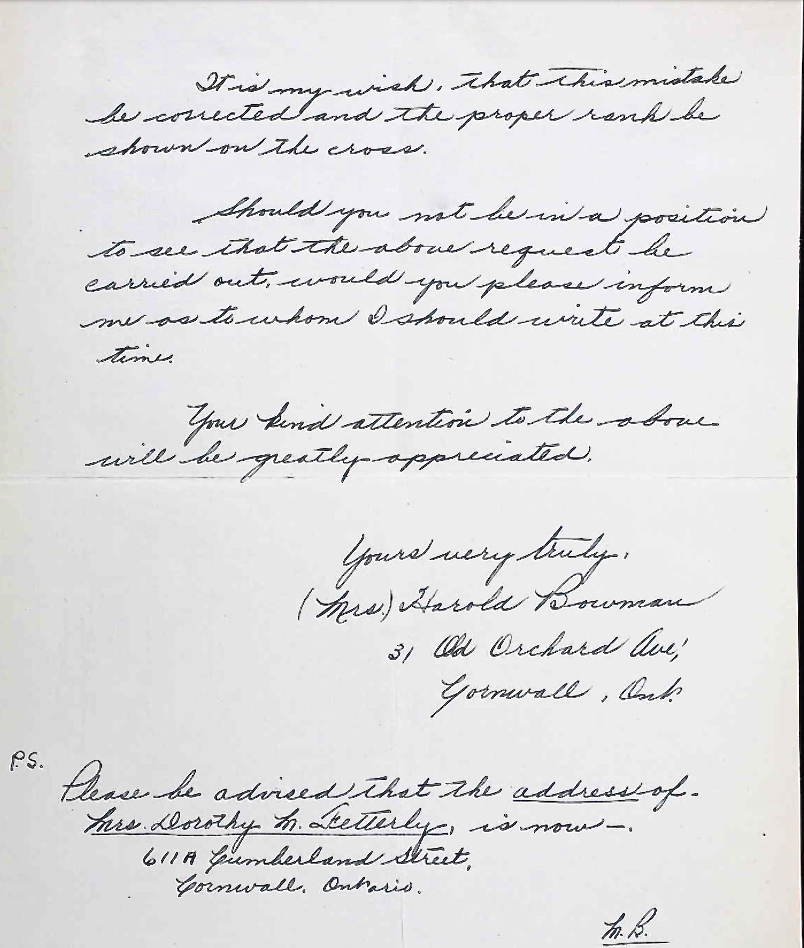 It is my wish, that this mistake
be corrected and the proper rank be
shown on the cross.
Should you not be in a position
to see that the above request be
carried out, would you please inform
me as to whom I should write at this
time.
Your kind attention to the above
will be greatly appreciated.
Yours very truly,
(Mrs.) Harold Bowman
31 Old Orchard Ave,
Cornwall, Ont.
P.S.
Please be advised that the address of -
Mrs. Dorothy M. Fetterly, is now -.
611A Cumberland Street,
Cornwall, Ontario.
M.B.